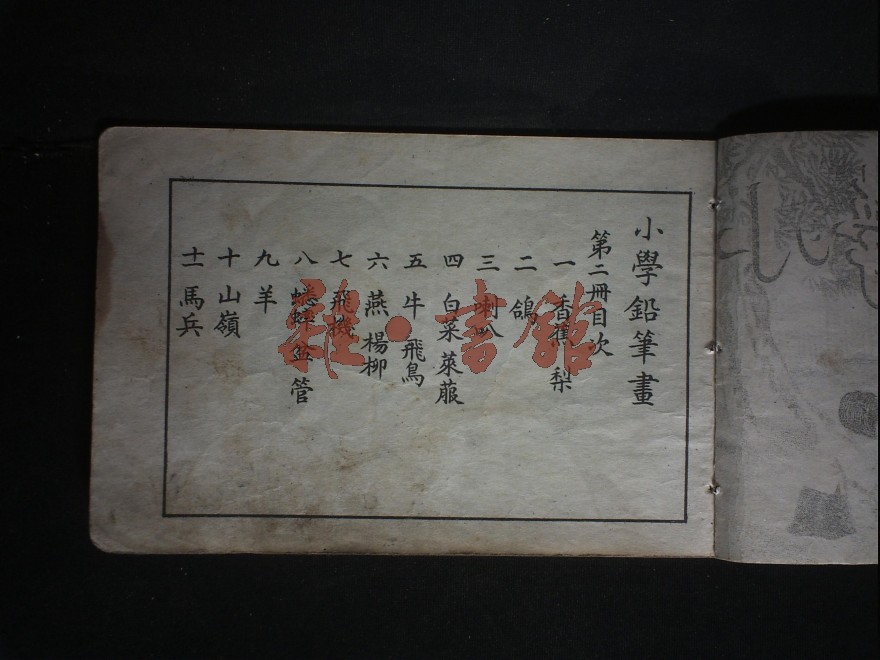 小學鉛筆畫
第二冊目次
一 香蕉 梨
二 鴿
三 喇叭
四 白菜 萊菔
五 牛 飛鳥
六 燕 楊柳
七 飛機
八 蟋蟀盆 管
九 羊
十 山嶺
十一 馬兵
雜·書館